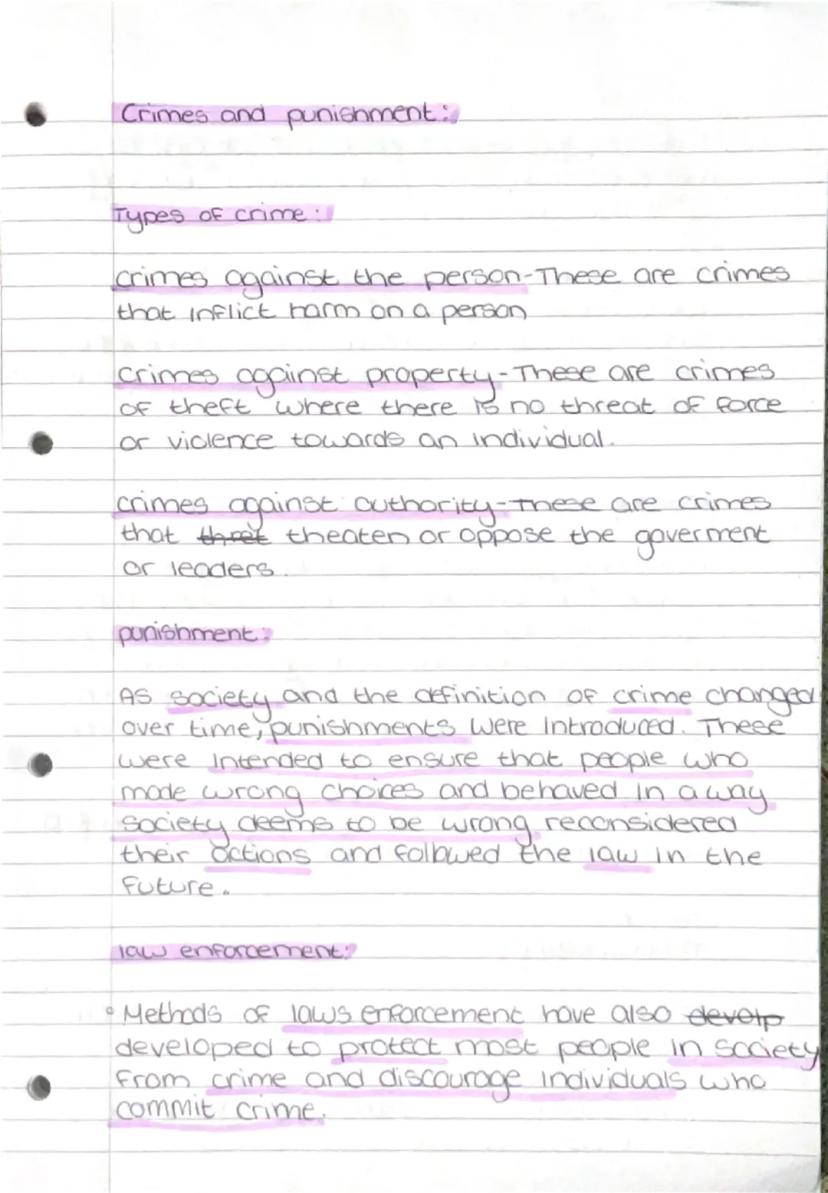 Crimes and punishment:
Types of crime:
crimes against the person-These are crimes
that inflict harm on a person
crimes against property-These are crimes
of theft where there is no threat of force
or violence towards an individual.
crimes against authority-These are crimes
that thret theaten or oppose the goverment
or leaders.
punishment:
As society and the definition of crime changed
over time, punishments were introduced. These
were intended to ensure that people who
made wrong choices and behaved in a way
society deems to be wrong reconsidered
their actions and followed the law in the
future.
law enforcement:
Methods of laws enforcement have also develp
developed to protect most people in society
from crime and discourage individuals who
commit crime.